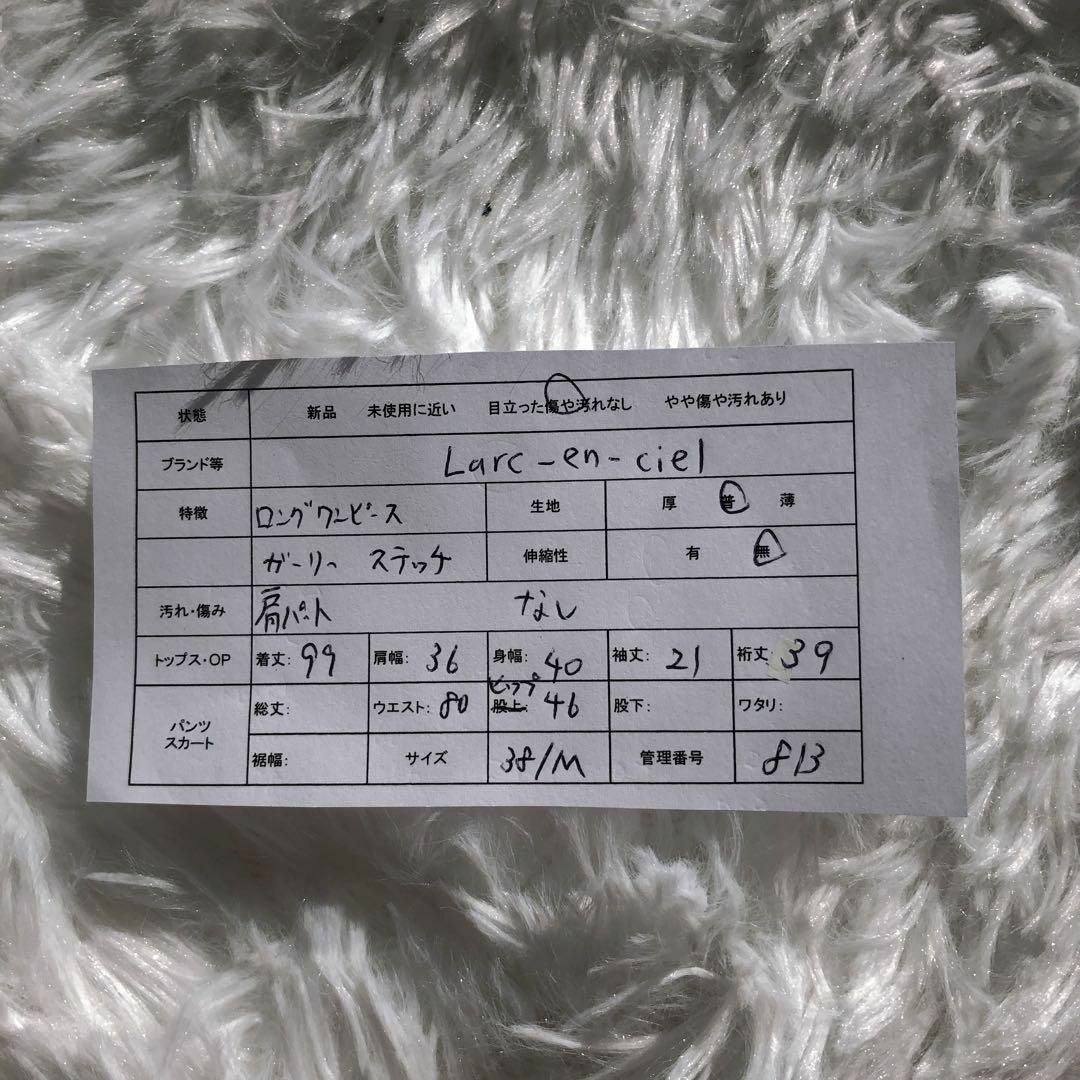 状態 新品 未使用に近い 目立った傷や汚れなし やや傷や汚れあり
ブランド等 Larc-en-ciel
特徴 ロングワンピース 生地 厚 普 薄
ガーリー ステッチ 伸縮性 有 無
汚れ・傷み 肩パット なし
トップス・OP 着丈: 99 肩幅: 36 身幅: 40 袖丈: 21 裄丈 39
パンツ スカート 総丈: ウエスト: 80 股上: ヒップ 46 股下: ワタリ:
裾幅: サイズ 38/M 管理番号 813